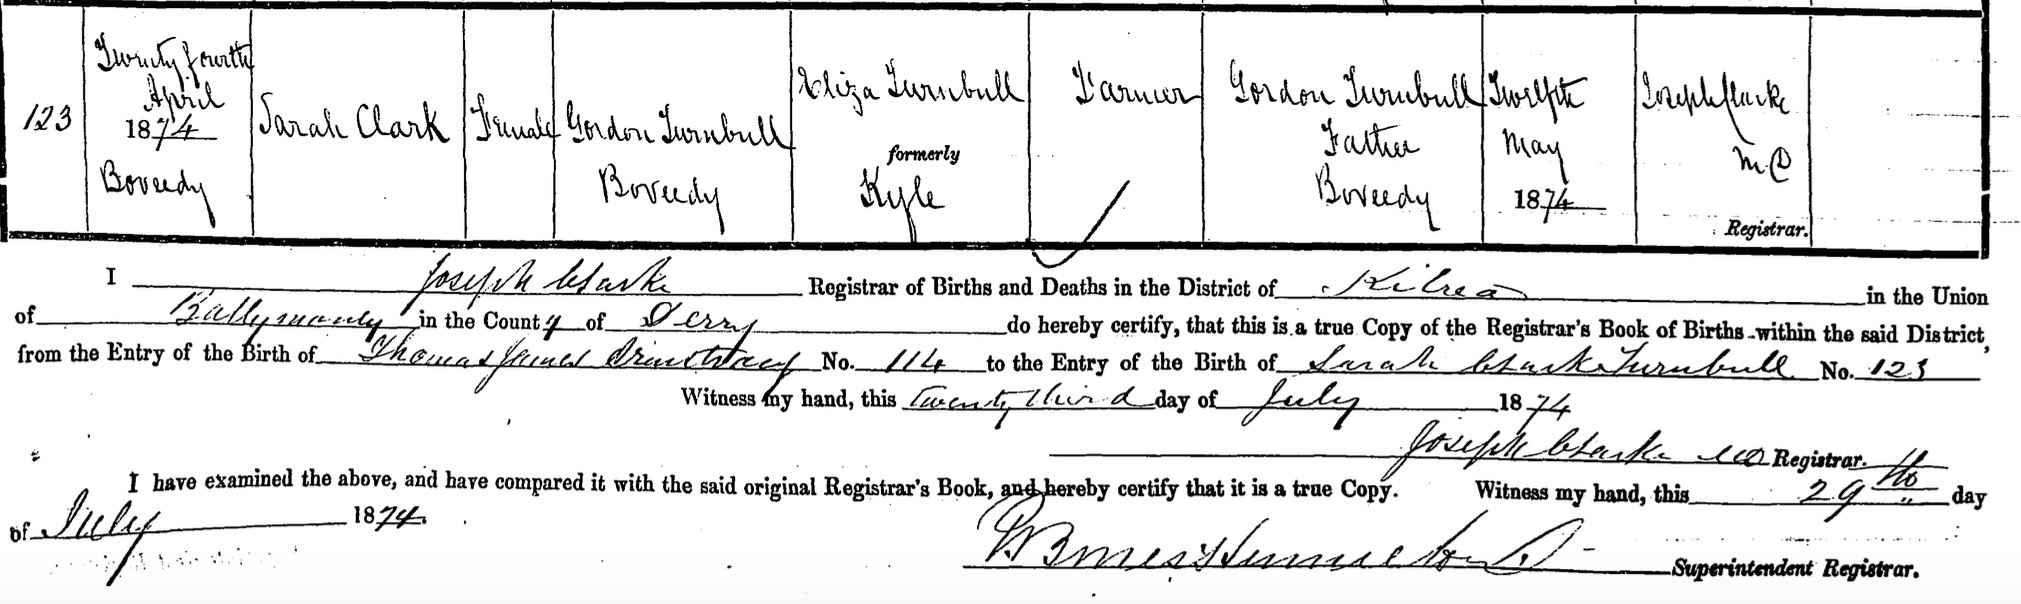 123
Twenty fourth
April
1874
Boveedy
Sarah Clark
Female
Gordon Turnbull
Boveedy
Eliza Turnbull
formerly
Kyle
Farmer
Gordon Turnbull
Father
Boveedy
Twelfth
May
1874
Joseph Clarke
MD
Registrar.
I Joseph Clarke Registrar of Births and Deaths in the District of Kilrea in the Union
of Ballymoney in the County of Derry do hereby certify, that this is a true Copy of the Registrar's Book of Births within the said District,
from the Entry of the Birth of Thomas James No. 114 to the Entry of the Birth of Sarah Clark Turnbull No. 123
Witness my hand, this Twenty third day of July 1874
Joseph Clarke MD Registrar.
I have examined the above, and have compared it with the said original Registrar's Book, and hereby certify that it is a true Copy. Witness my hand, this 29th day
of July 1874.
Superintendent Registrar.